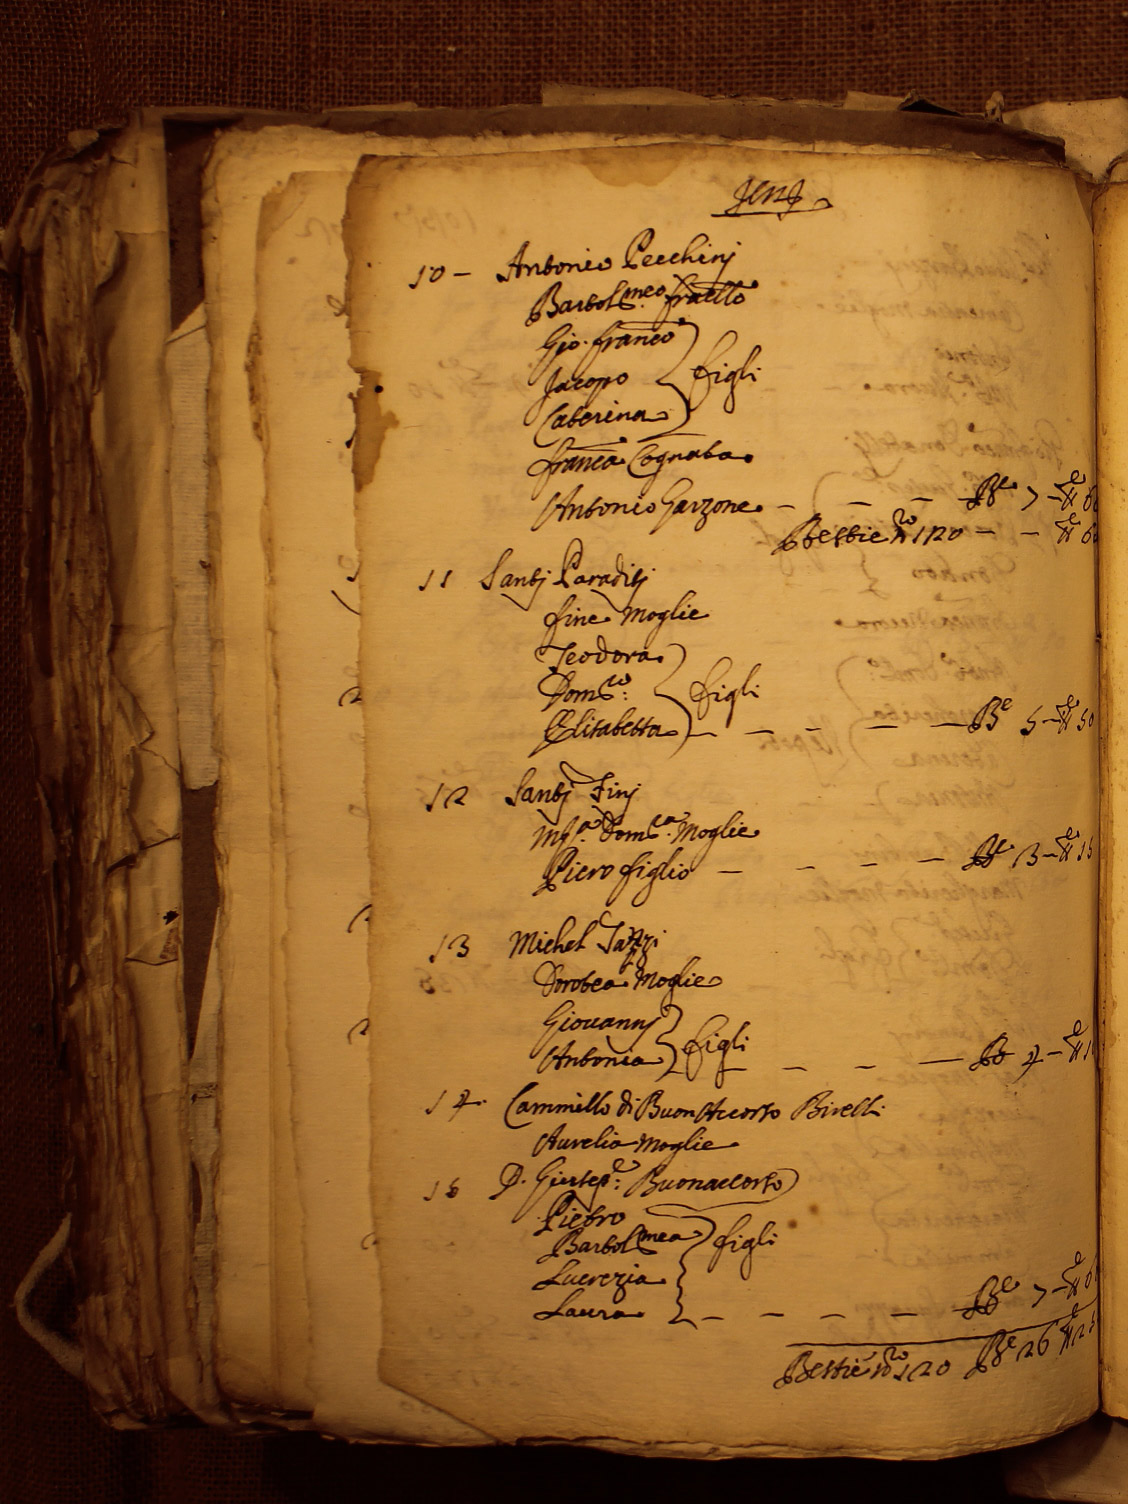 10 - Antonio Pecchinj
Bartolmeo fratello
Gio: Franco
Jacopo } figli
Caterina
Franca Cognata
Antonio Garzone - - - - Be 7 - #
Bestie No 120 - - #
11 Santj Paradisj
fine Moglie
Teodora
Domco: } figli
Elisabetta - - - - - Be 5 - # 50
12 Santj Finj
Mga Domca Moglie
Piero figlio - - - - Be 3 - # 15
13 Michel
Dorotea Moglie
Giovannj
Antonia } figli - - - Be 4 - #
14. Cammillo di BuonAccorso Birelli
Aurelia Moglie
15 D. Giusepe: Buonaccorso
Pietro
Bartolmea } figli
Lucrezia
Laura - - - - Be 7 - #
Bestie No 120 Be 26 #